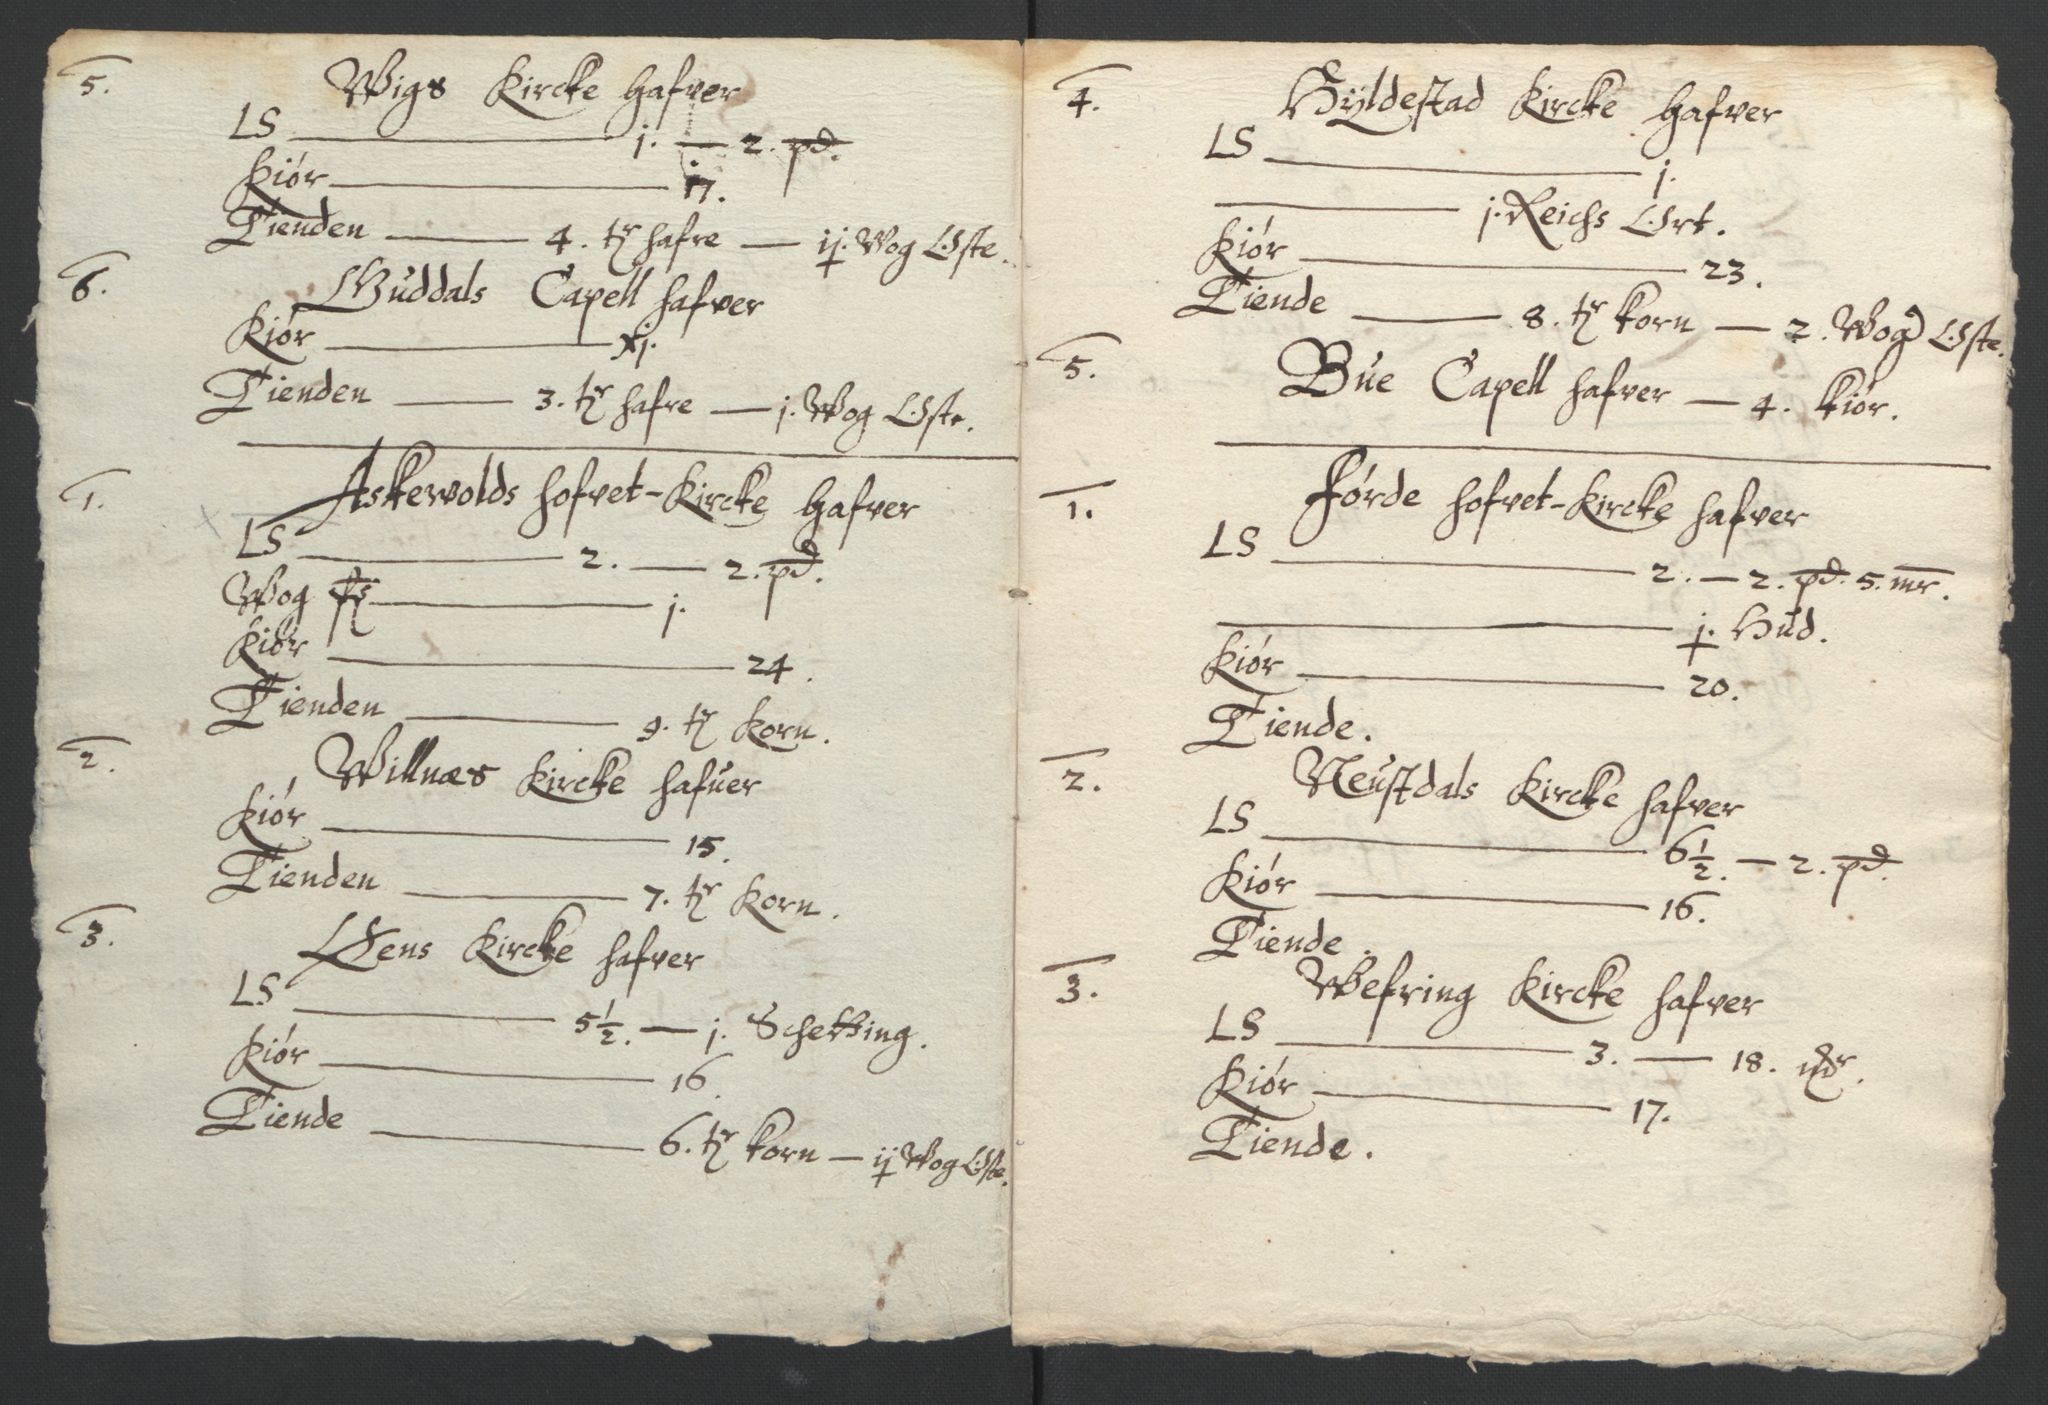 5. Wigs Kircke hafver
LS — j. — 2. pd.
Kiór — 17.
Tienden — 4. tr hafre — ij. Wog Oste.
6. Guddals Capell hafver
Kiór — xj.
Tienden — 3. tr hafre — j. Wog Oste.
1. Askewolds hofvet-Kircke hafver
LS — 2. — 2. pd.
Wog — j.
Kiór — 24.
Tienden — 9. tr Korn.
2. Willnæs Kircke hafuer
Kiór — 15.
Tienden — 7. tr Korn.
3. Øens Kircke hafver
LS — 5½. — j. Schetting.
Kiór — 16.
Tiende — 6. tr korn — ij Wog Oste.
4. Hÿldestad Kircke hafver
LS — j.
— j. Reichs Ort.
Kiór — 23.
Tiende — 8. tr korn — 2. Wog Oste.
5. Bue Capell hafver — 4. kiór.
1. Fórde hofvet-Kircke hafver
LS — 2. — 2. pd. 5. mr.
— j. Hud.
Kiór — 20.
Tiende.
2. Neustdals Kircke hafver
LS — 6½. — 2. pd.
Kiór — 16.
Tiende.
3. Wefring Kircke hafver
LS — 3. — 18.
Kiór — 17.
Tiende.